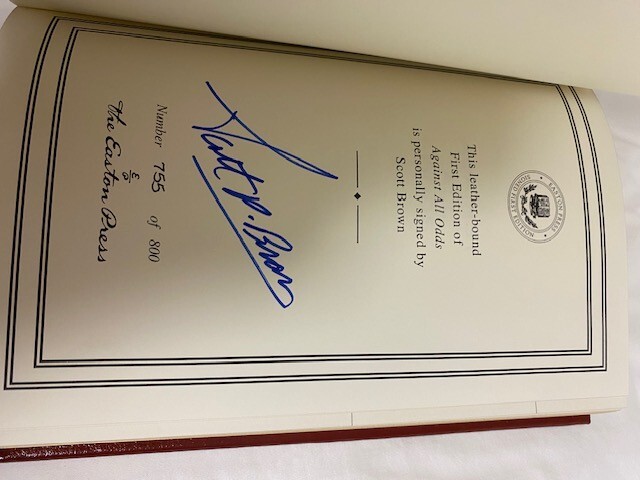 EASTON PRESS
SIGNED FIRST EDITION
This leather-bound
First Edition of
Against All Odds
is personally signed by
Scott Brown
Scott P. Brown
Number 755 of 800
The Easton Press